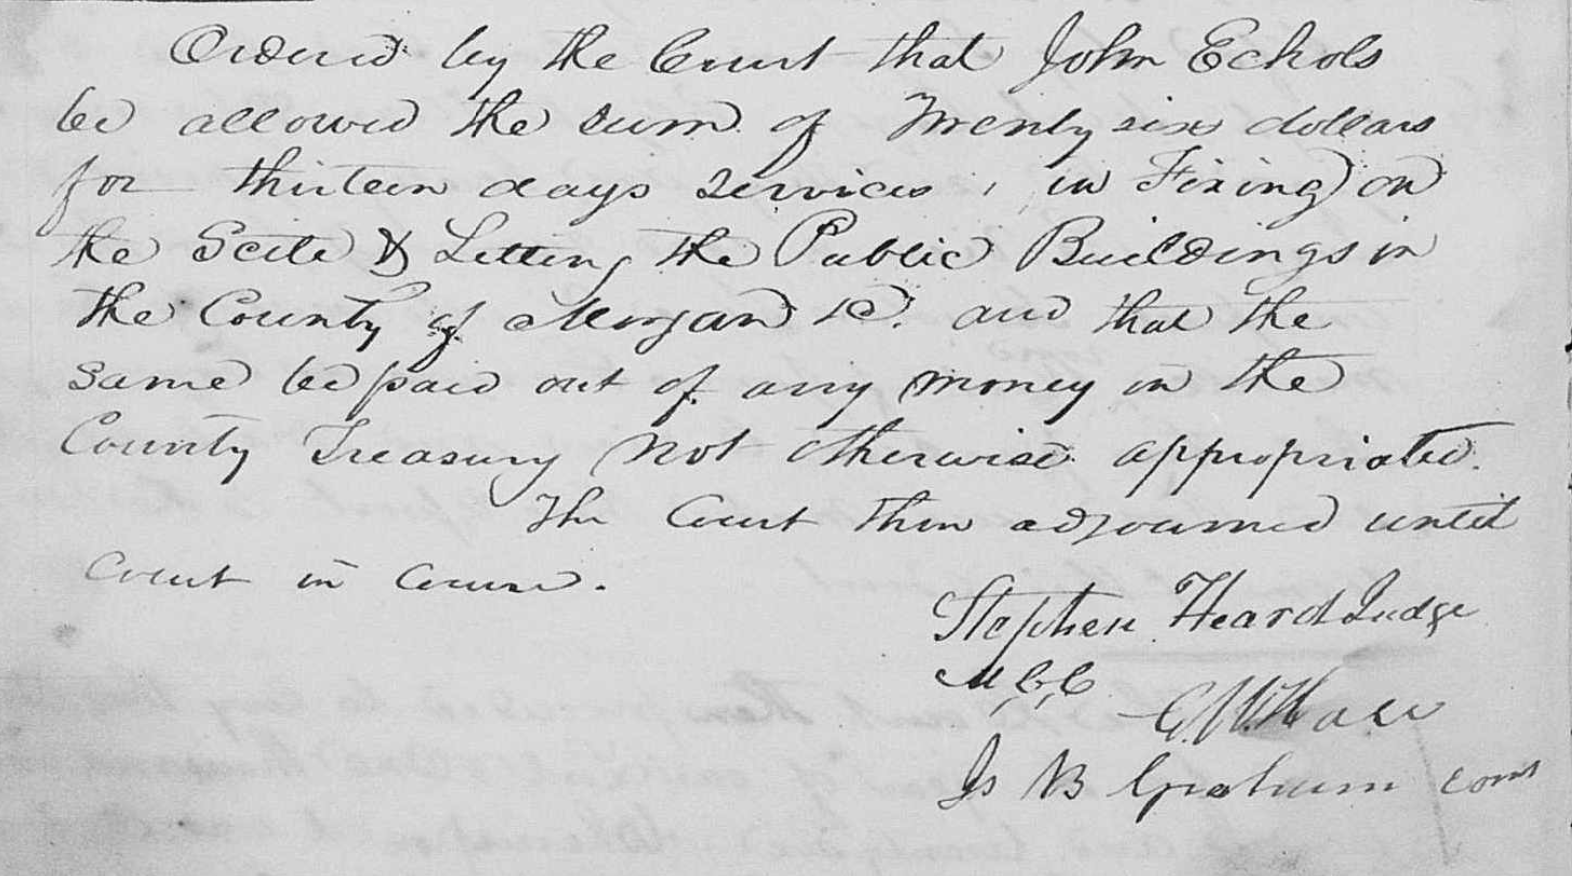 Ordered by the Court that John Echols
be allowed the sum of Twenty six dollars
for thirteen days services, in Fixing on
the Scite & Letting the Public Buildings in
the County of Morgan &C. and that the
same be paid out of any money in the
County Treasury not otherwise appropriated.
The Court then adjourned until
Court in Course.
Stephen Heard Judge
M.C.C.
G. W. Hase
Js B Graham Coms